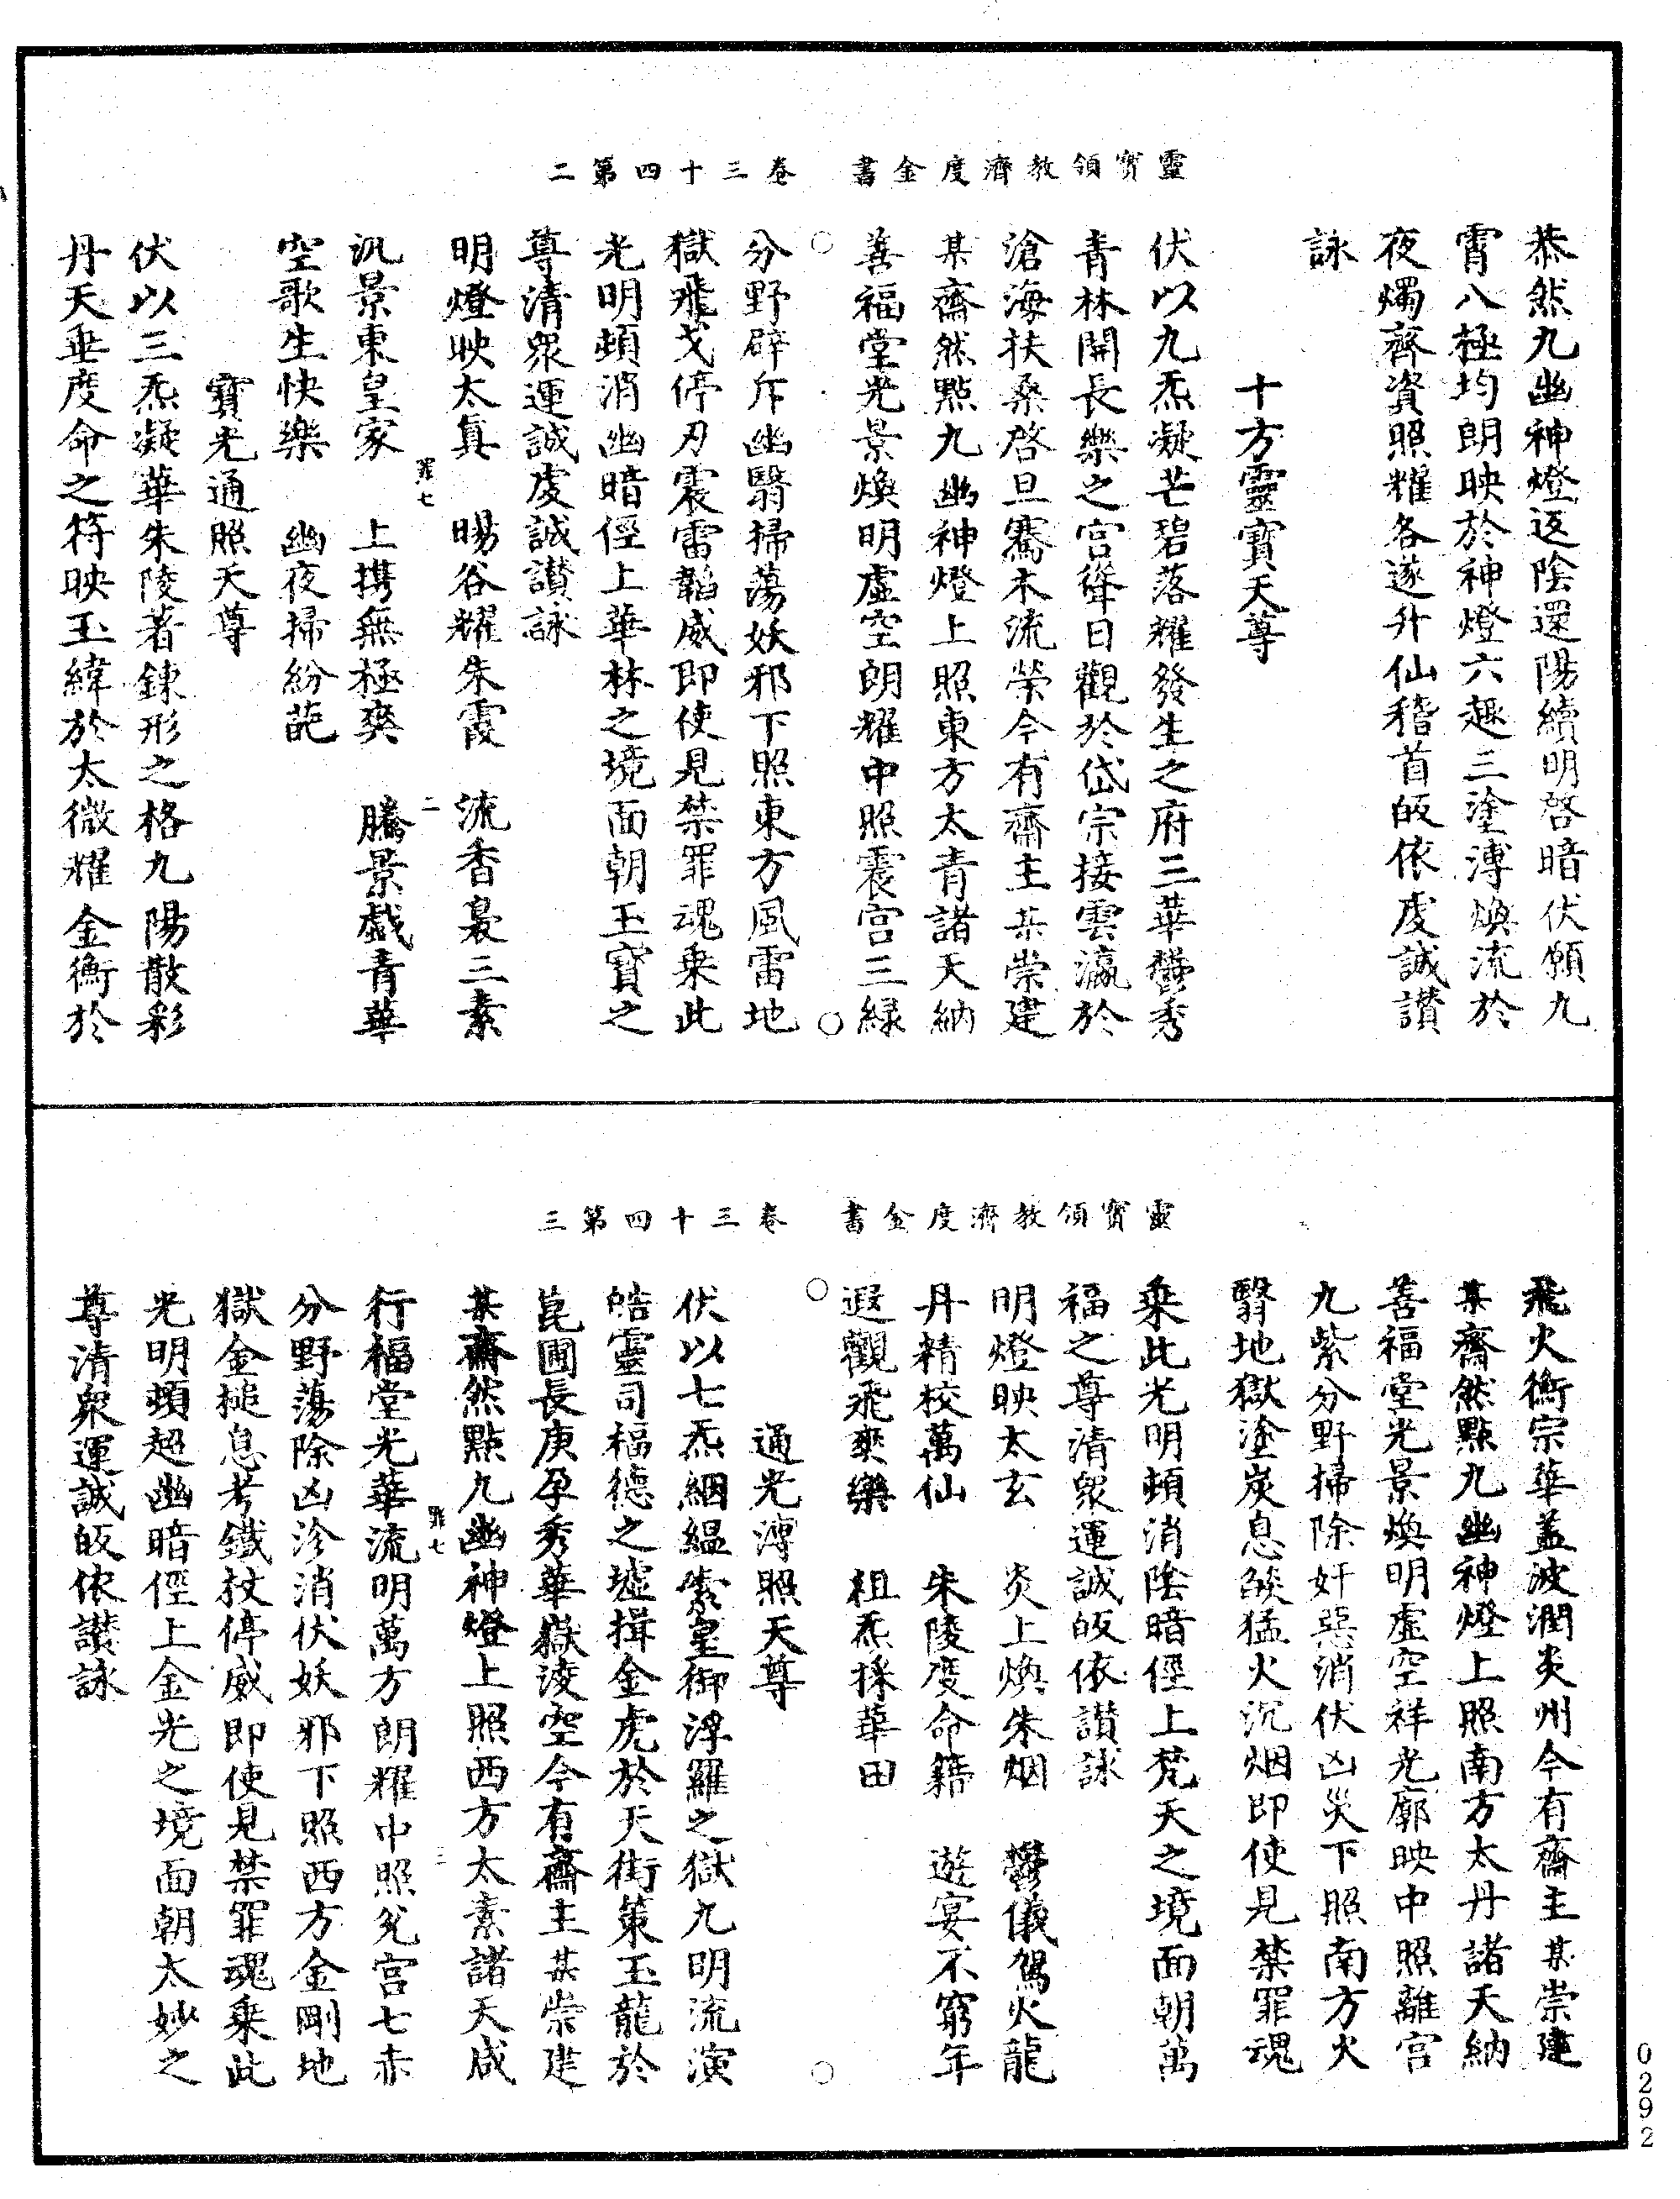 靈寶領教濟度金書　卷三十四第二
恭然九幽神燈返陰還陽續明啓暗伏願九
霄八極均朗映於神燈六趣三塗溥煥流於
夜燭齊資照耀各遂升仙稽首皈依虔誠讃
詠
十方靈寶天尊
伏以九炁凝芒碧落耀發生之府三華鬱秀
青林開長樂之宮聳日觀於岱宗接雲瀛於
滄海扶桑啓旦騫木流榮今有齋主某崇建
某齋然點九幽神燈上照東方太青諸天納
善福堂光景煥明虛空朗耀中照震宮三緑
分野辟斥幽翳掃蕩妖邪下照東方風雷地
獄飛戈停刃震雷韜威即使見禁罪魂乗此
光明頓消幽暗俓上華林之境面朝玉寶之
尊清衆運誠虔誠讃詠
明燈映太真　暘谷耀朱霞　流香裊三素
汎景東皇家　上携無極爽　騰景戲青華
空歌生快樂　幽夜掃紛葩
寶光通照天尊
伏以三炁凝華朱陵著錬形之格九陽散彩
丹天垂度命之符映玉緯於太微耀金衡於
罪七
二
靈寶領教濟度金書　卷三十四第三
飛火衡宗華蓋波潤炎州今有齋主某崇建
某齋然點九幽神燈上照南方太丹諸天納
善福堂光景煥明虛空祥光廓映中照離宮
九紫分野掃除奸惡消伏凶災下照南方火
翳地獄塗炭息燄猛火沉烟即使見禁罪魂
乗此光明頓消陰暗俓上梵天之境面朝萬
福之尊清衆運誠皈依讃詠
明燈映太玄　炎上煥朱烟　鬱儀駕火龍
丹精校萬仙　朱陵度命籍　遊宴不窮年
遐觀飛爽樂　祖炁採華田
通光溥照天尊
伏以七炁絪縕素皇御浮羅之獄九明流演
皓靈司福德之墟揖金虎於天街策玉龍於
崑圃長庚孕秀華嶽淩空今有齋主某崇建
某齋然點九幽神燈上照西方太素諸天咸
行福堂光華流明萬方朗耀中照兊宮七赤
分野蕩除凶沴消伏妖邪下照西方金剛地
獄金搥息考鐵杖停威即使見禁罪魂乗此
光明頓超幽暗俓上金光之境面朝太妙之
尊清衆運誠皈依讃詠
罪七
三
0292